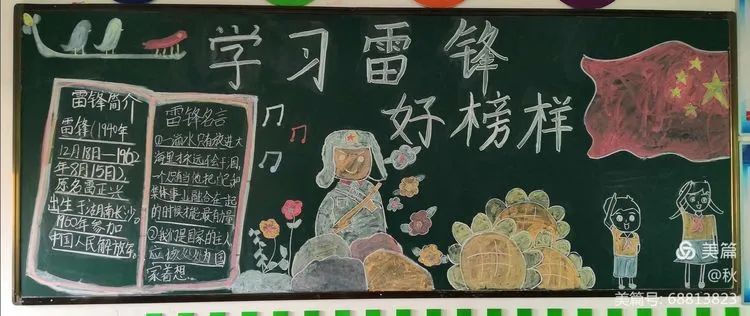 学习雷锋
好榜样
雷锋简介
雷锋(1940年
12月18日—1962
年8月15日),
原名雷正兴
出生于湖南长沙。
1960年参加
中国人民解放军。
雷锋名言
①一滴水只有放进大
海里才永远不会干涸,
一个人只有当他把自己和
集体事业融合在一起
的时候才能最有力量
②我们是国家的主人
应该处处为国
家着想。
美篇
@秋
美篇号: 68813823